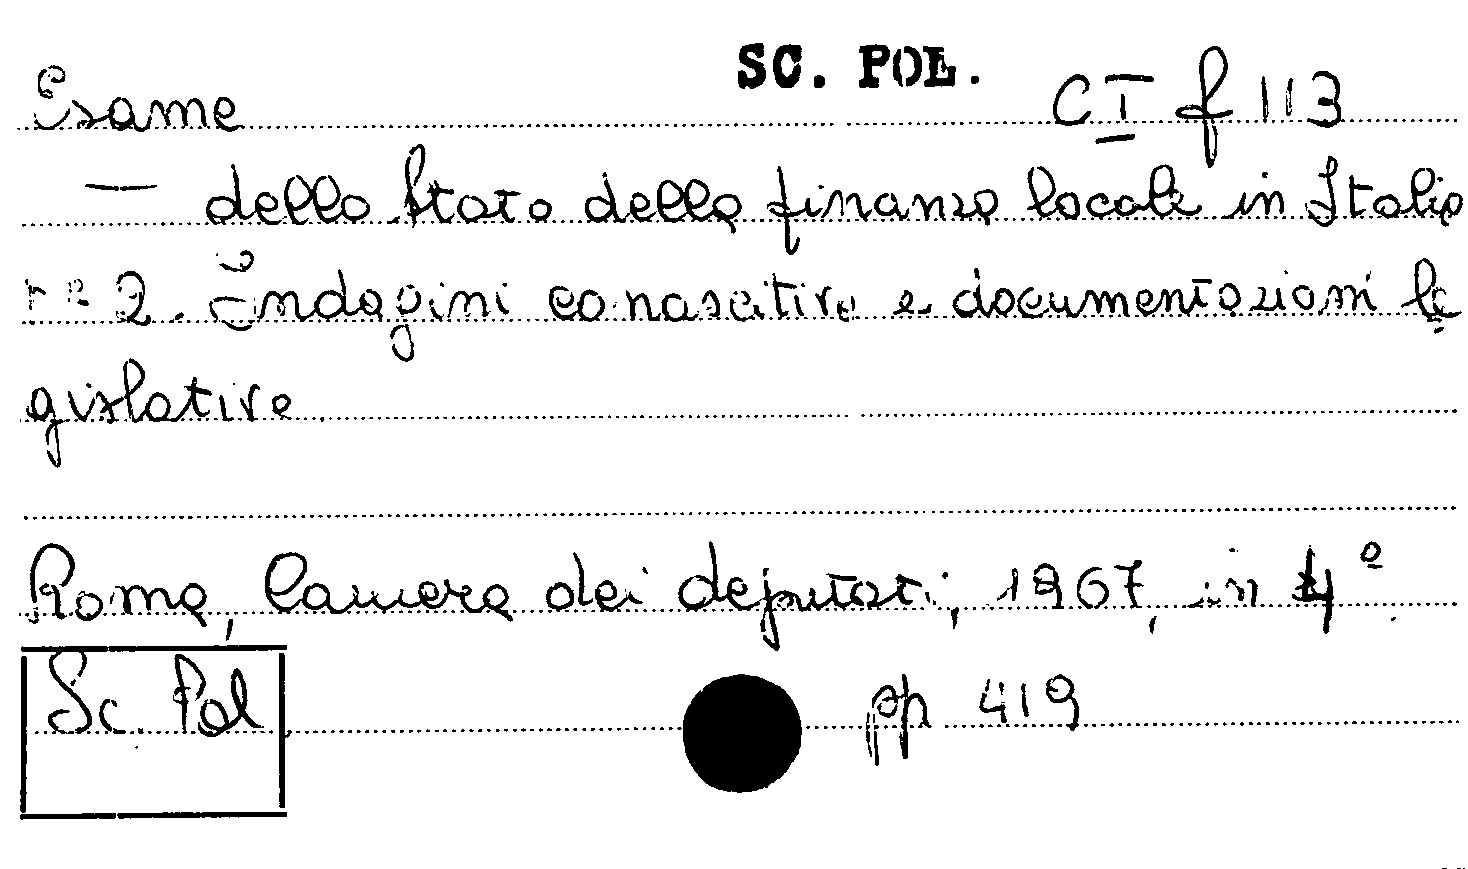 SC. POL.
Esame C I f 113
— dello Stato della finanza locale in Italia
nº 2. Indagini conoscitive e documentazioni le
gislative
Roma, Camera dei deputati, 1967, in 4º
Sc. Pol pp 419